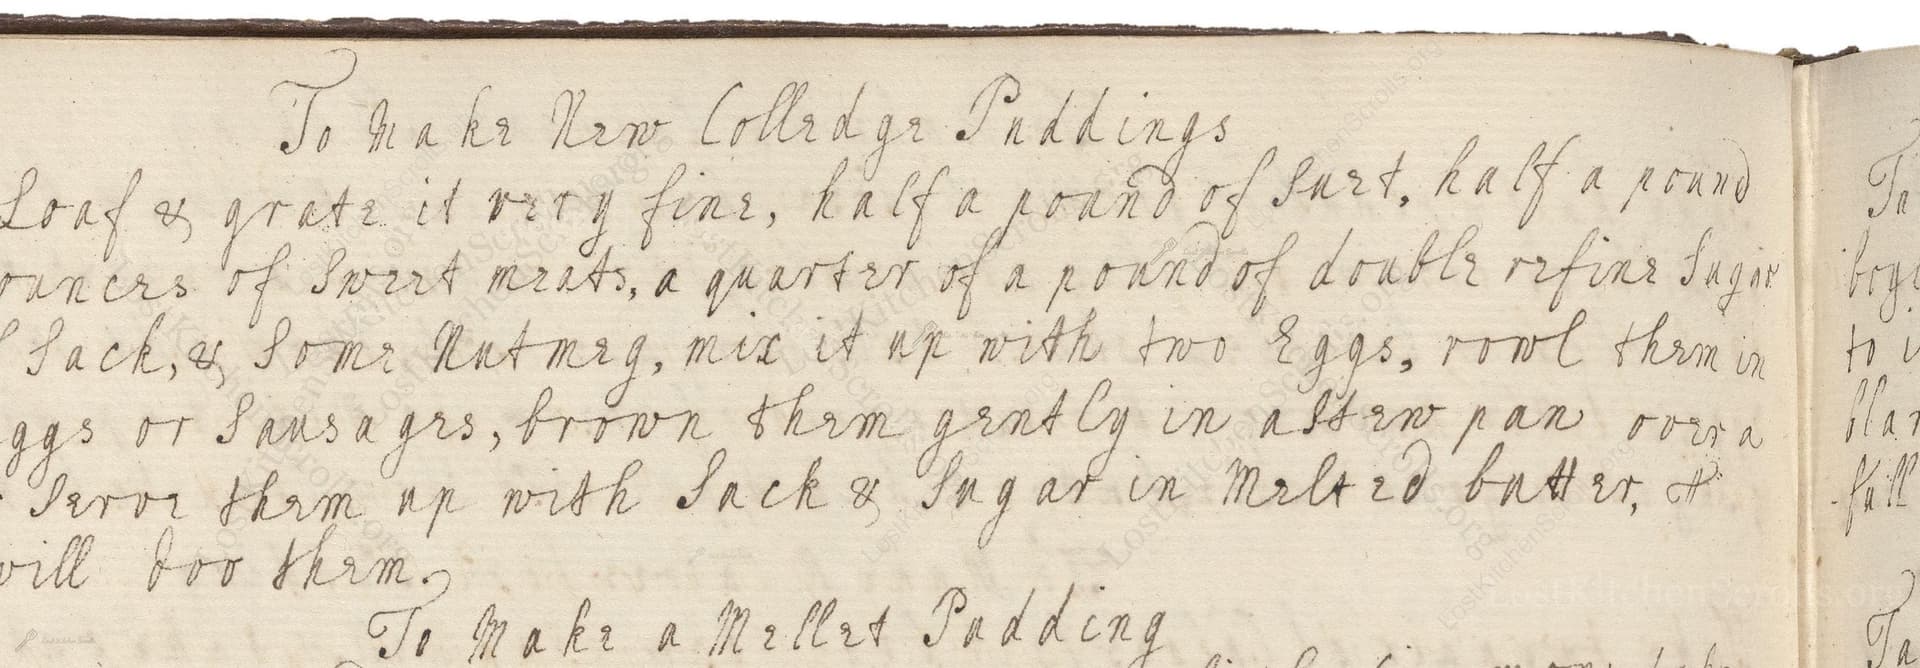 To Make New Colledge Puddings
Loaf & grate it very fine, half a pound of Suet, half a pound
ounces of Sweet meats, a quarter of a pound of double refine Sugar
Sack, & Some Nutmeg, mix it up with two Eggs, rowl them in
ggs or Sausages, brown them gently in a Stew pan over a
Serve them up with Sack & Sugar in Melted butter,
will doo them.
To Make a Mellet Pudding
to
full
LostKitchenScrolls.org